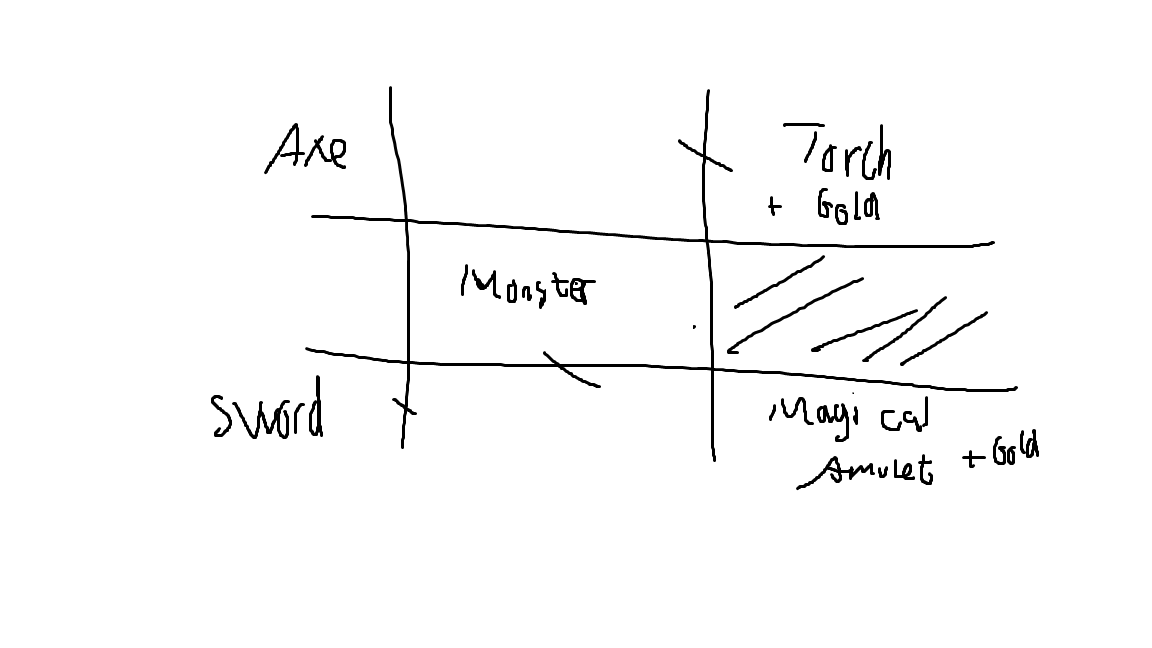 Axe
Torch
+ Gold
Monster
Sword
Magical
Amulet + Gold